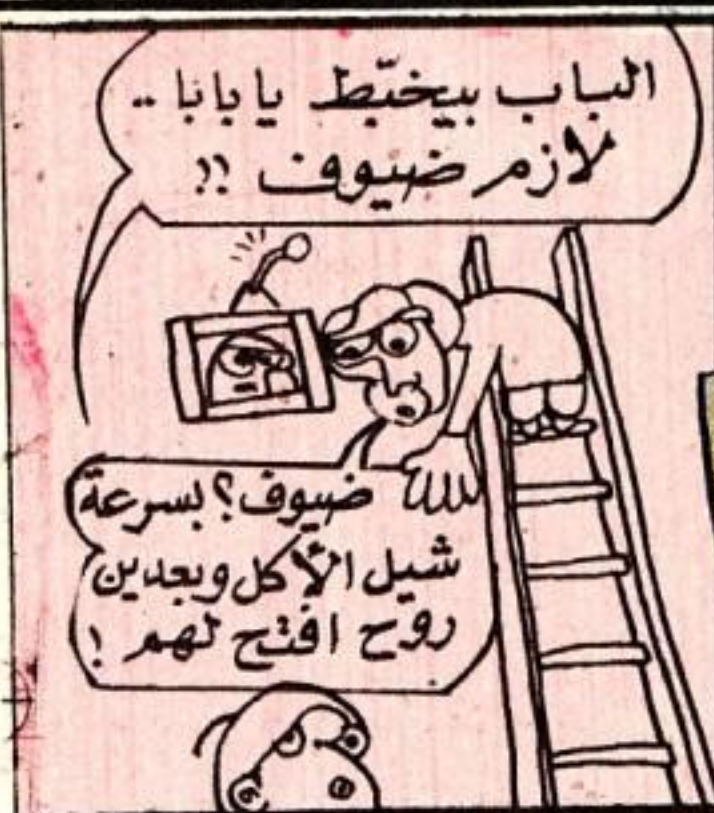 الباب بيخبّط يا بابا ..
لازم ضيوف !!
ضيوف؟ بسرعة
شيل الأكل وبعدين
روح افتح لهم !